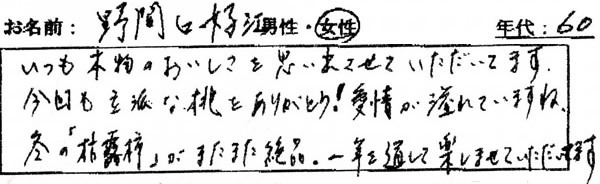 お名前: 野間口好江 男性・女性 年代: 60
いつも本物のおいしさを思い出させていただいてます。
今回も立派な桃をありがとう!愛情が溢れていますね。
冬の「枯露柿」がまたまた絶品。一年を通して楽しませていただいてます